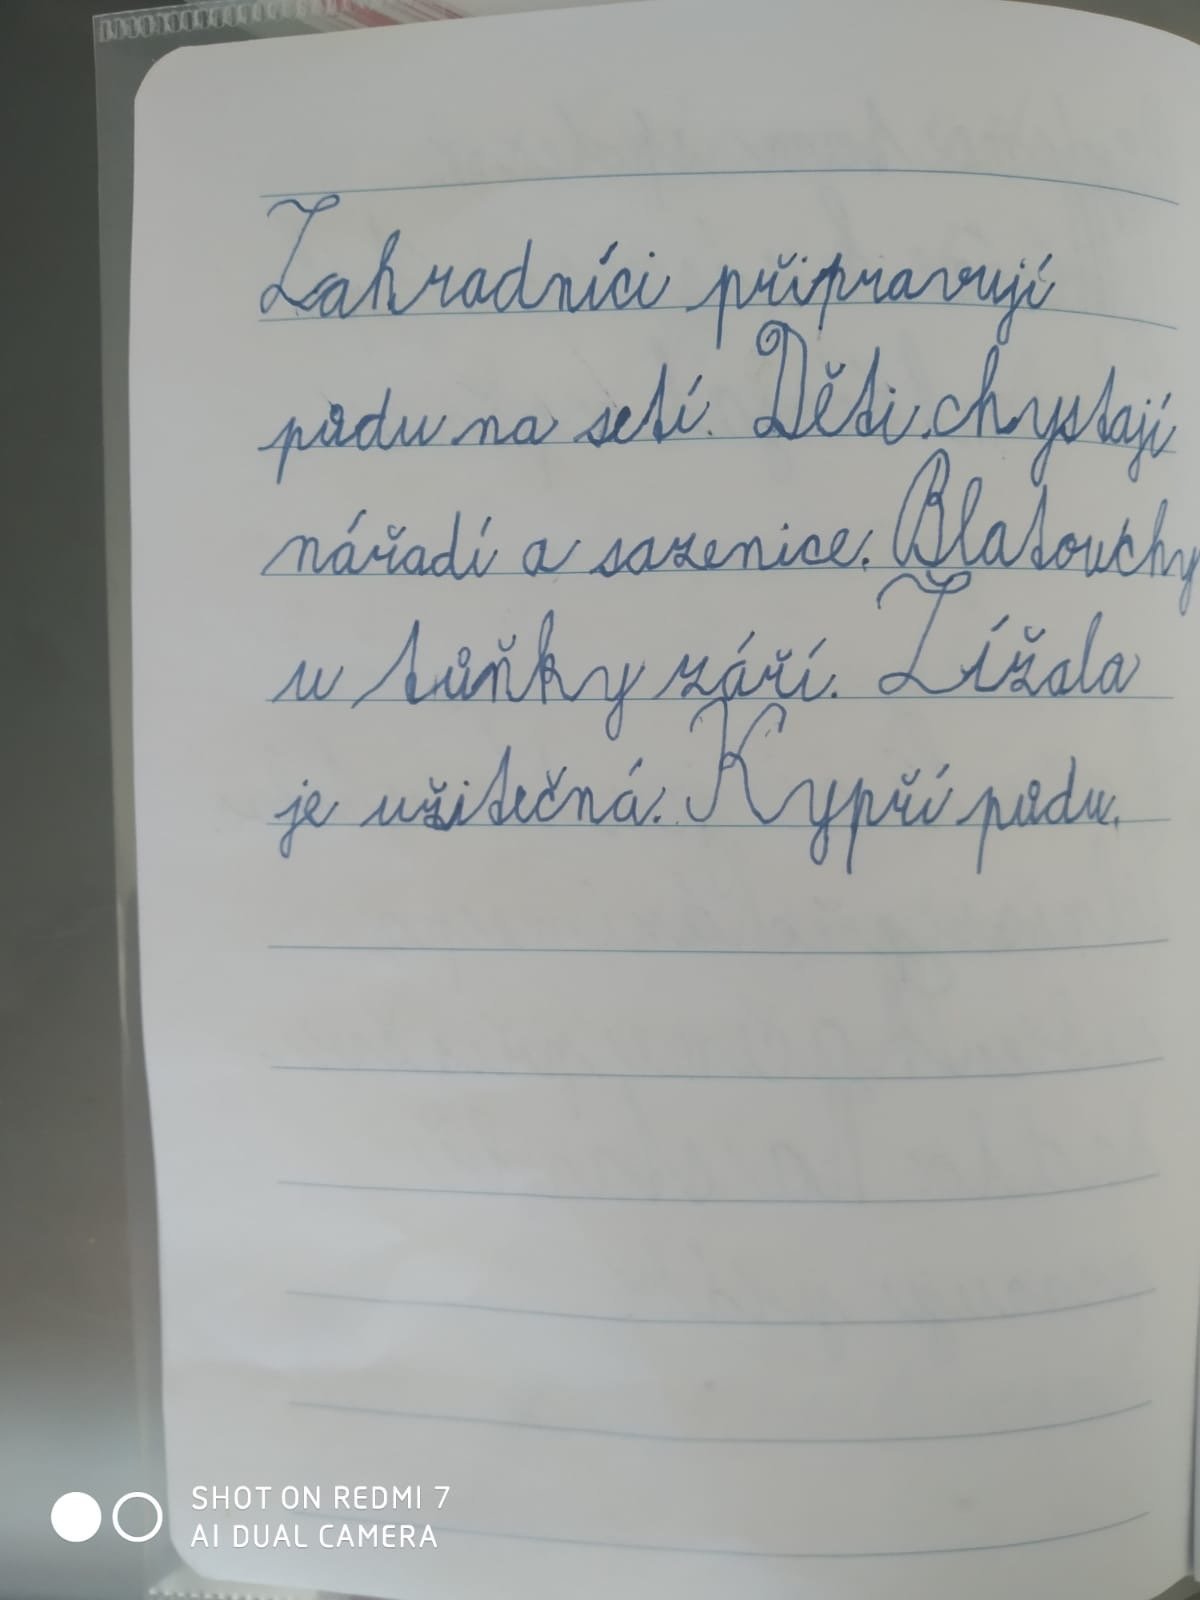 Zahradníci připravují
půdu na setí. Děti chystají
nářadí a sazenice. Blatouchy
u tůňky září. Žížala
je užitečná. Kypří půdu.
SHOT ON REDMI 7
AI DUAL CAMERA